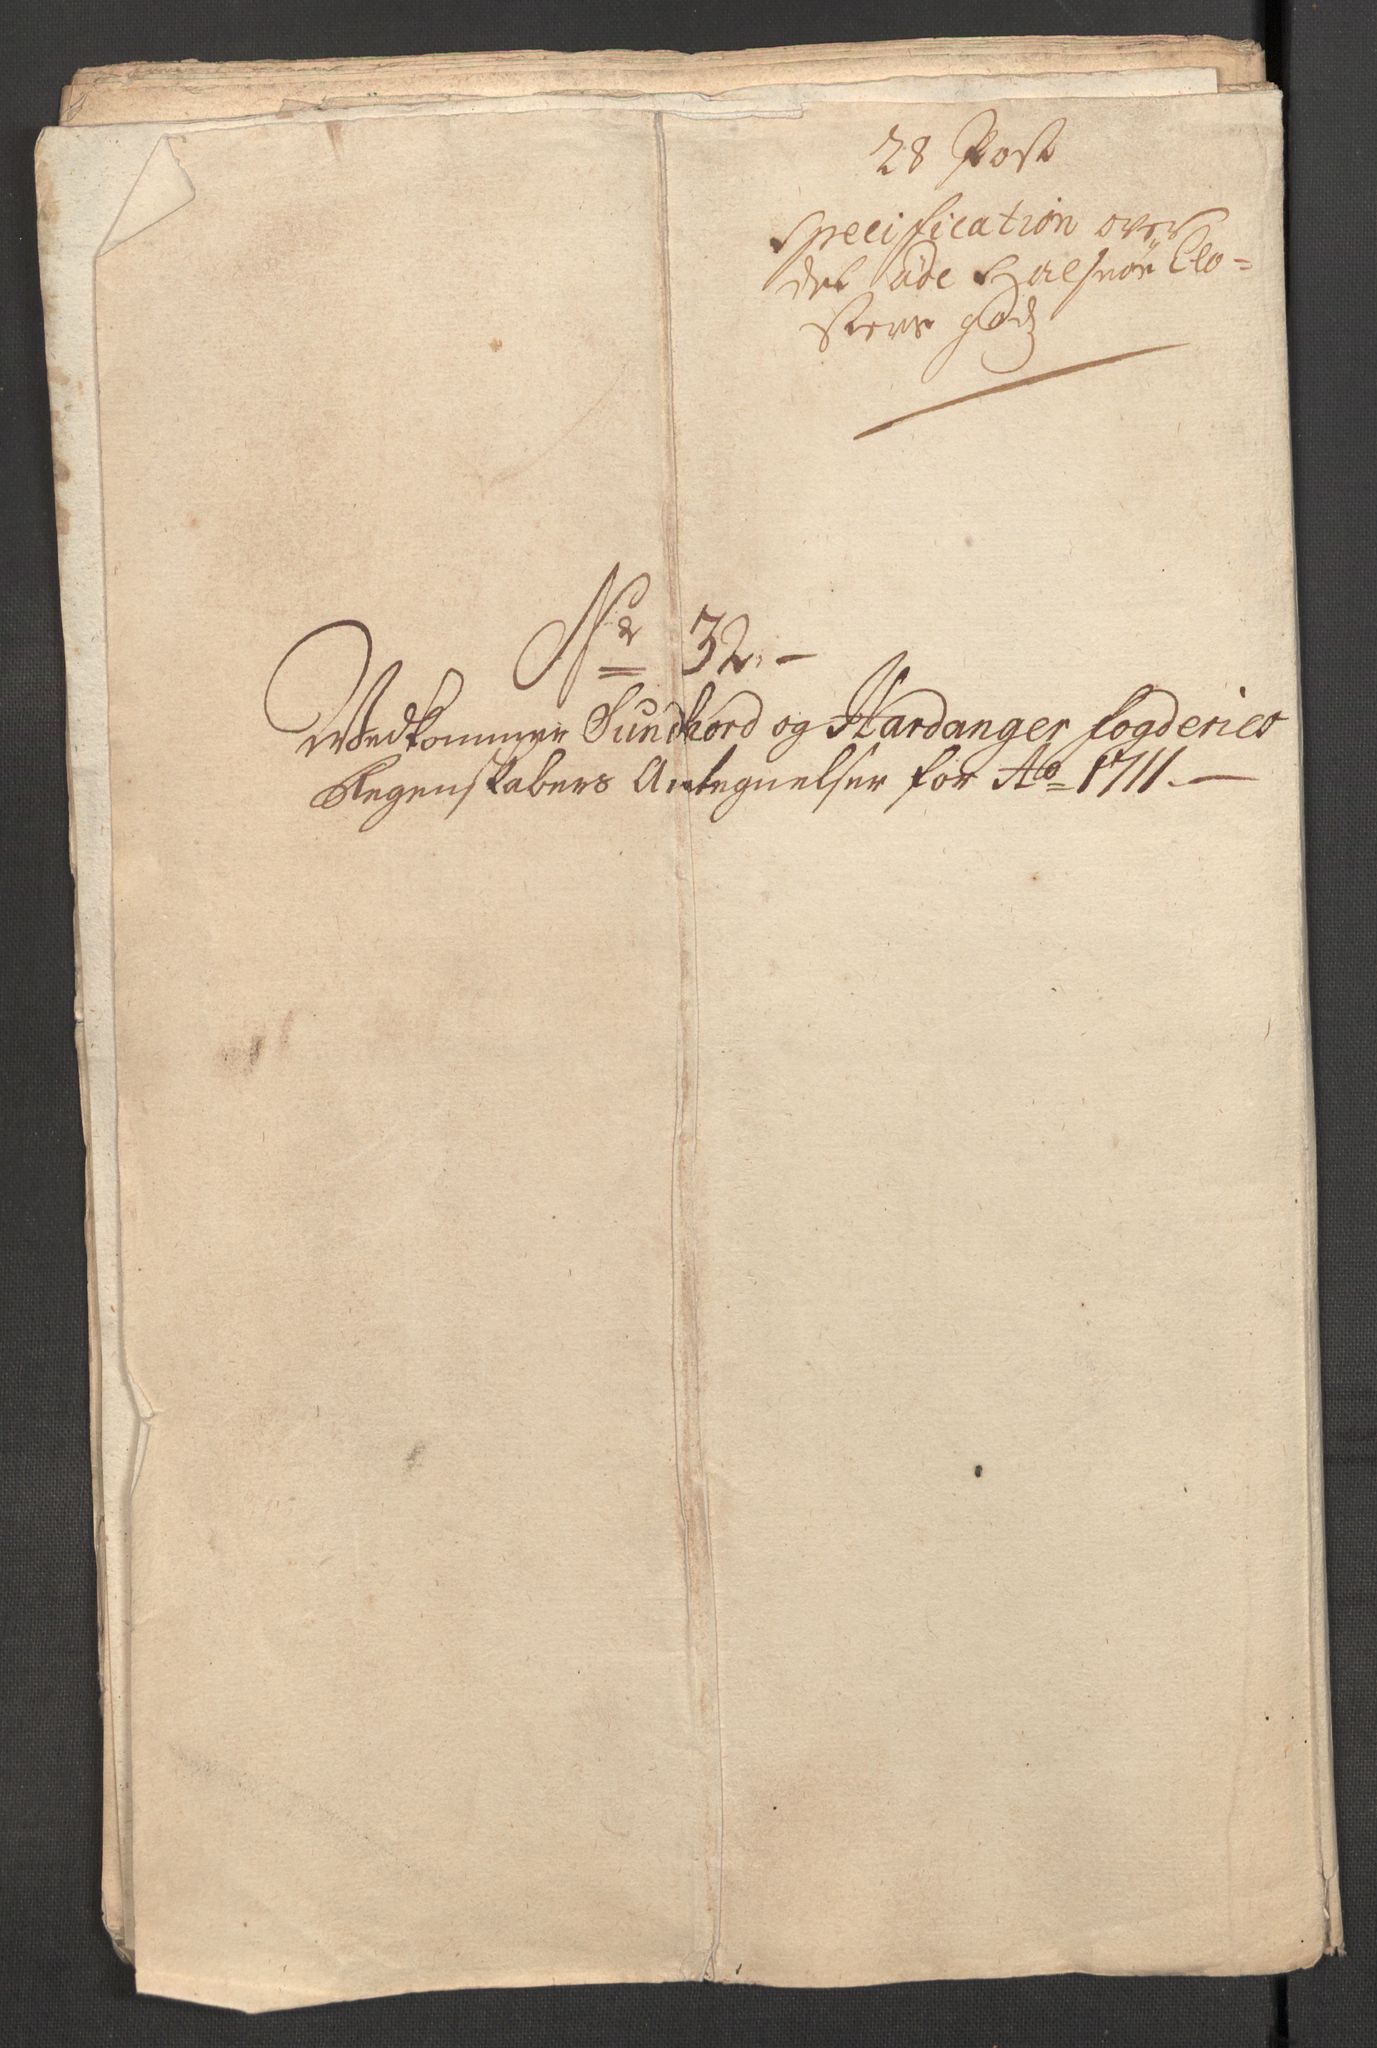 28 Post
Specification over
det øde Halsnøe Clo=
sters godz
No 32. —
Wedkommer Sundhord og Hardanger fogderies
Regenskabers Antegnelser for Ao 1711. —